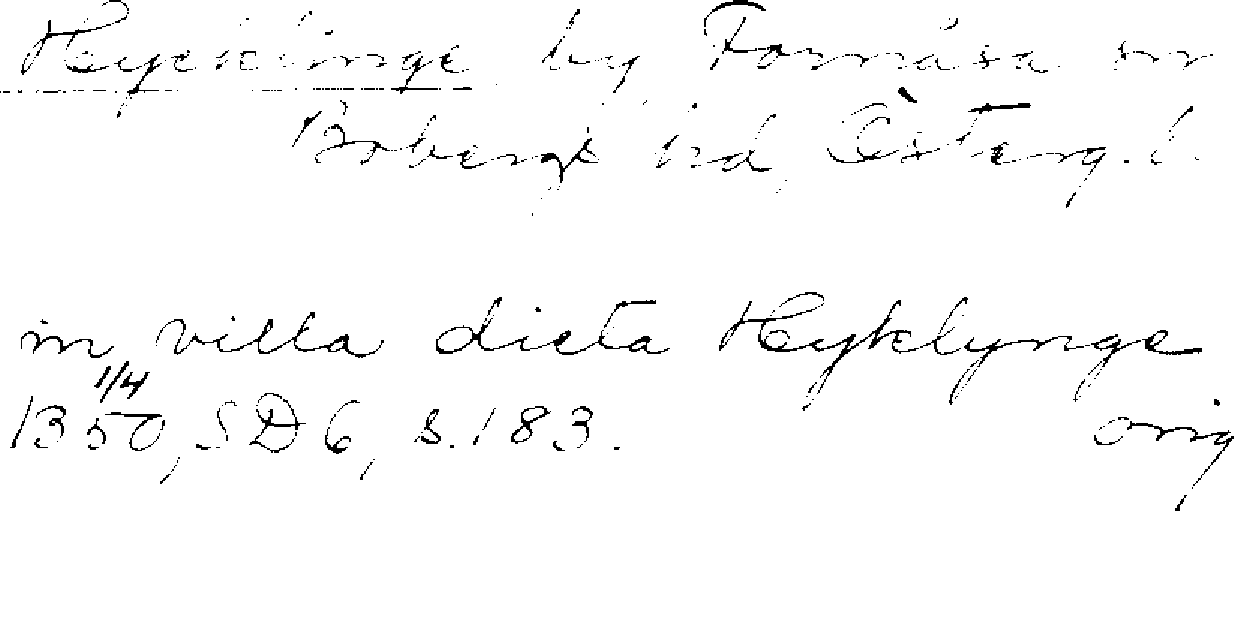 Hycklinge by Fornåsa sn
Bobergs hd, Österg. l.
in villa dicta Hyklynge
1/4
1350, SD 6, s. 183. orig